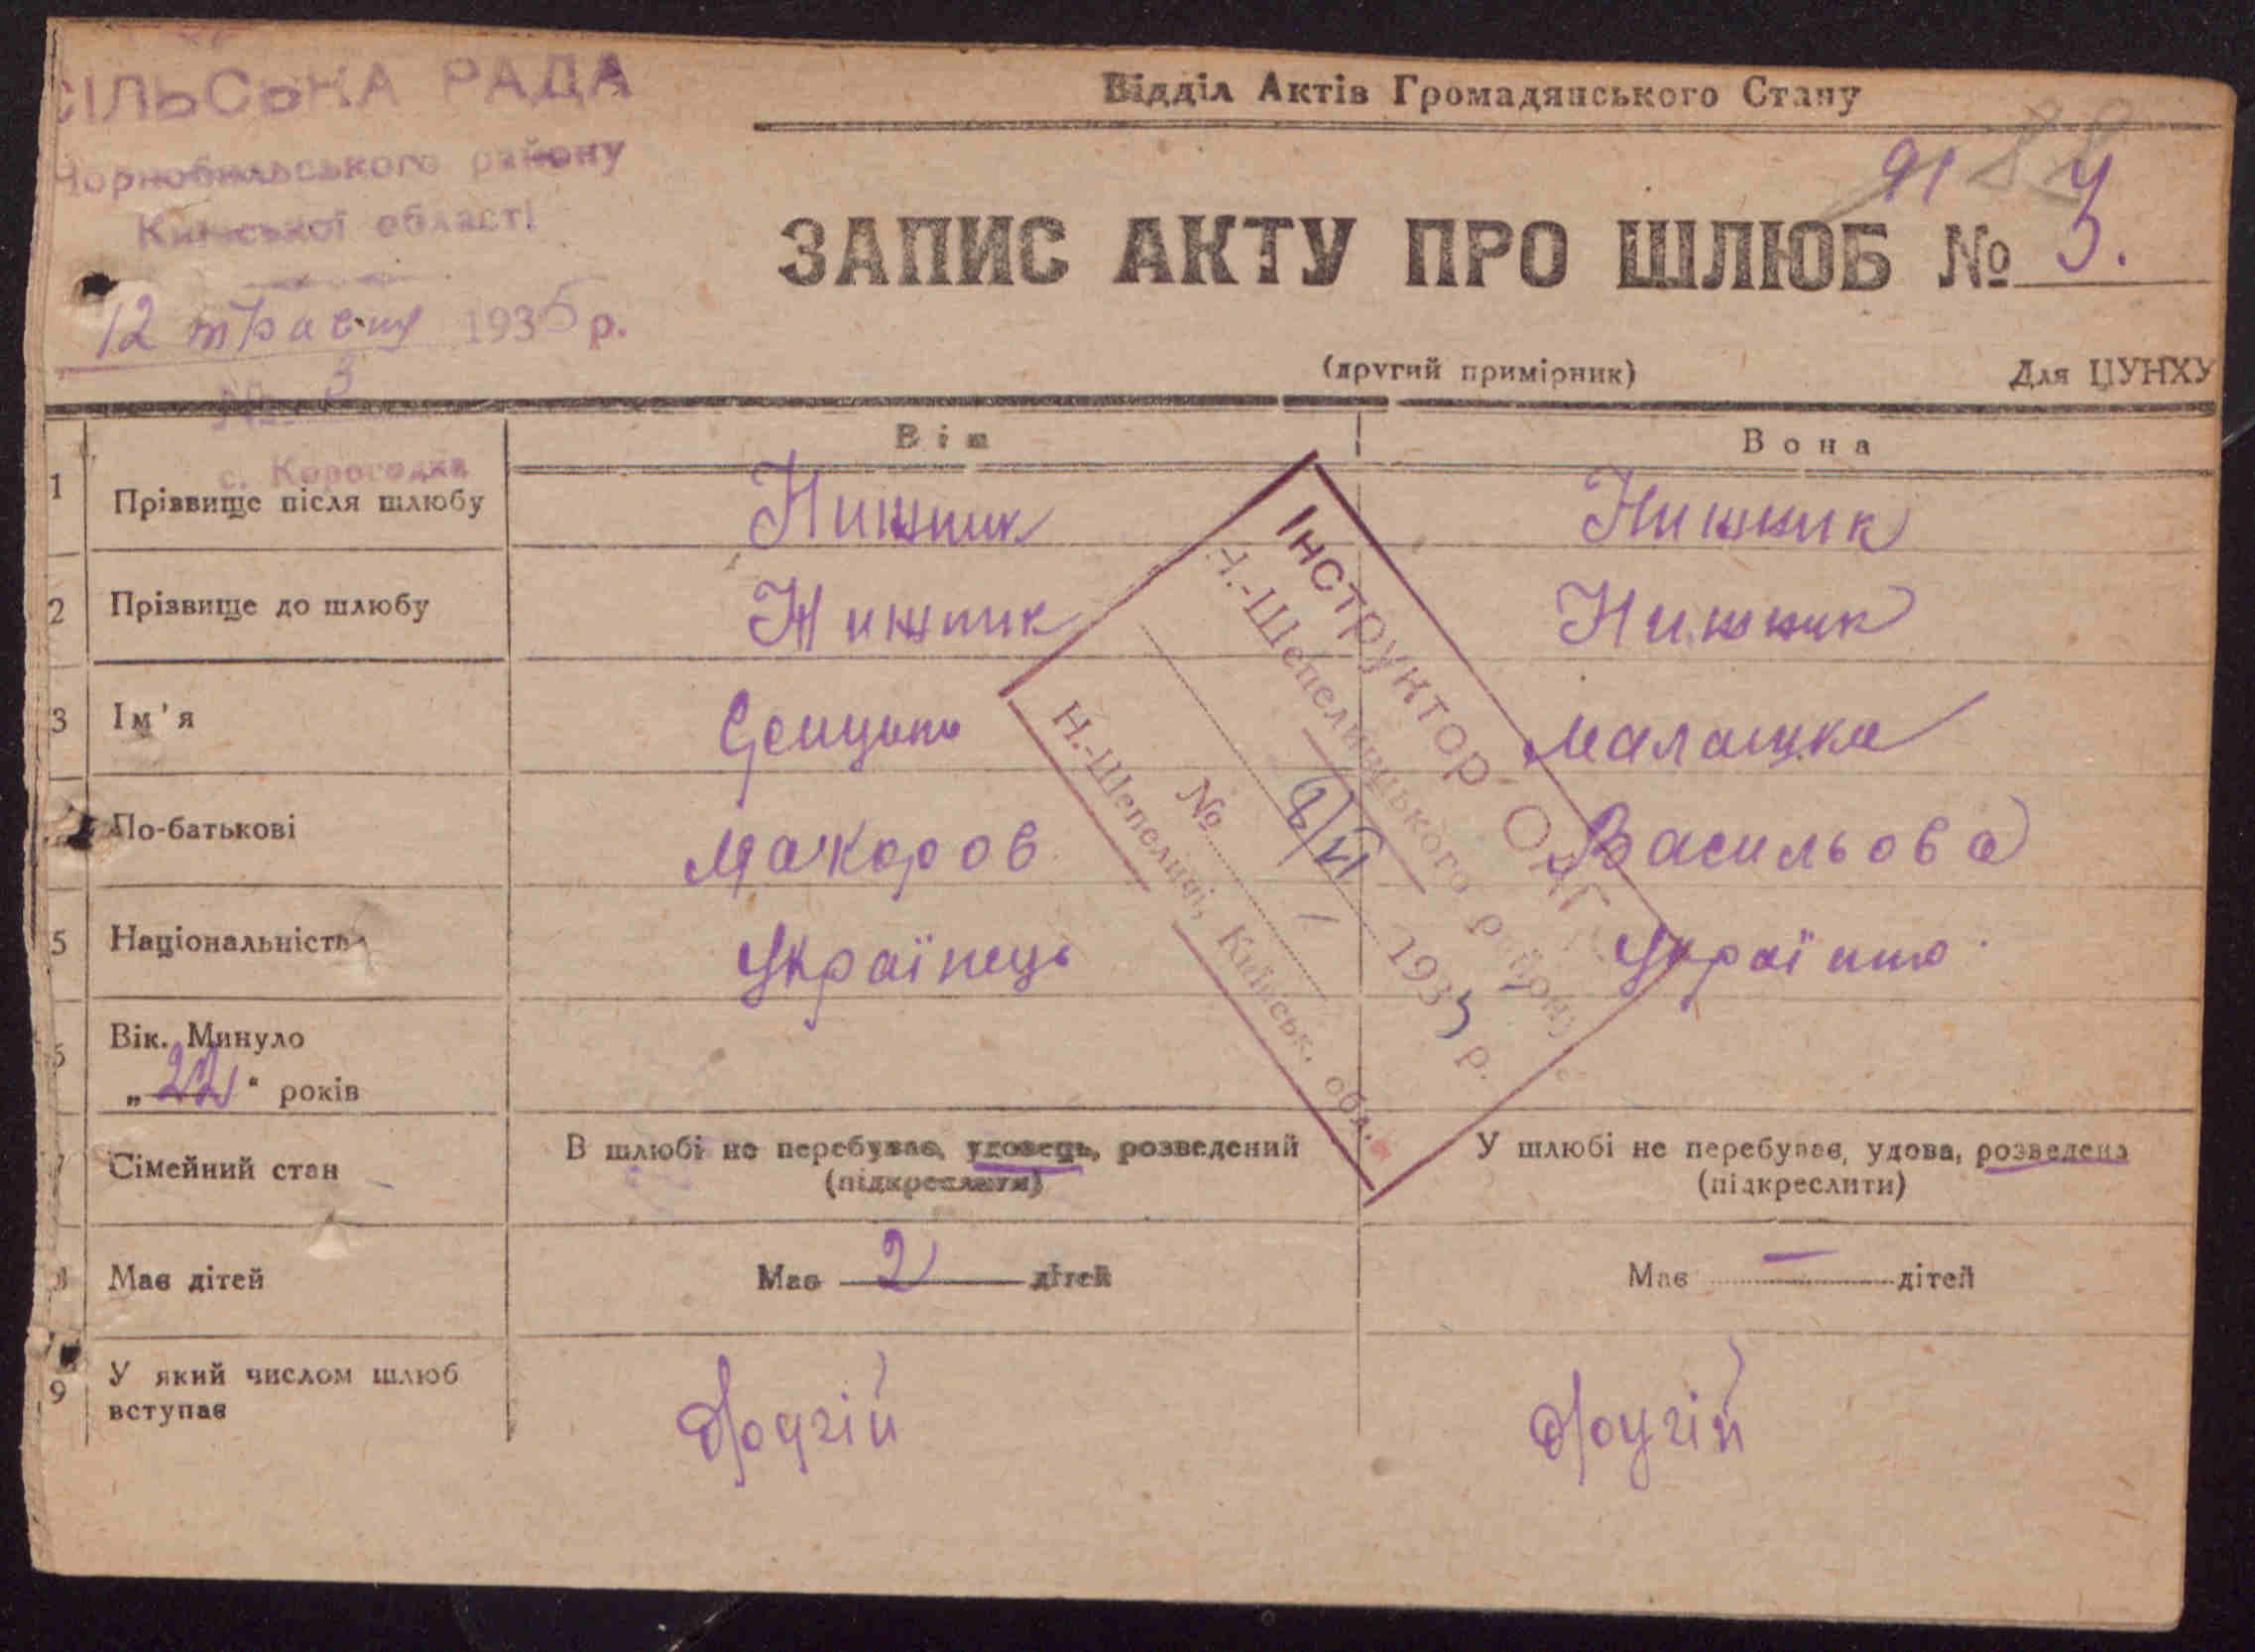 СІЛЬСЬКА РАДА
Чорнобильського району
Київської області
12 травня 1935 р.
№ 3
с. Корогодка
Відділ Актів Громадянського Стану
91 88
ЗАПИС АКТУ ПРО ШЛЮБ № 3.
(другий примірник) Для ЦУНХУ
Він Вона
1 Прізвище після шлюбу Нишник Нишник
2 Прізвище до шлюбу Нишник Нишник
3 Ім'я Малашка
По-батькові Макаров Васильова
5 Національність Українець
Вік. Минуло
„22“ років
7 Сімейний стан В шлюбі не перебуває, удовець, розведений У шлюбі не перебуває, удова, розведена
(підкреслити) (підкреслити)
Має дітей Має 2 дітей Має — дітей
9 У який числом шлюб вступає Другій Другій
Інструктор ОАГС
Н.-Шепелицького району
8/VI 1935 р.
№
Н.-Шепеличі, Київськ. обл.